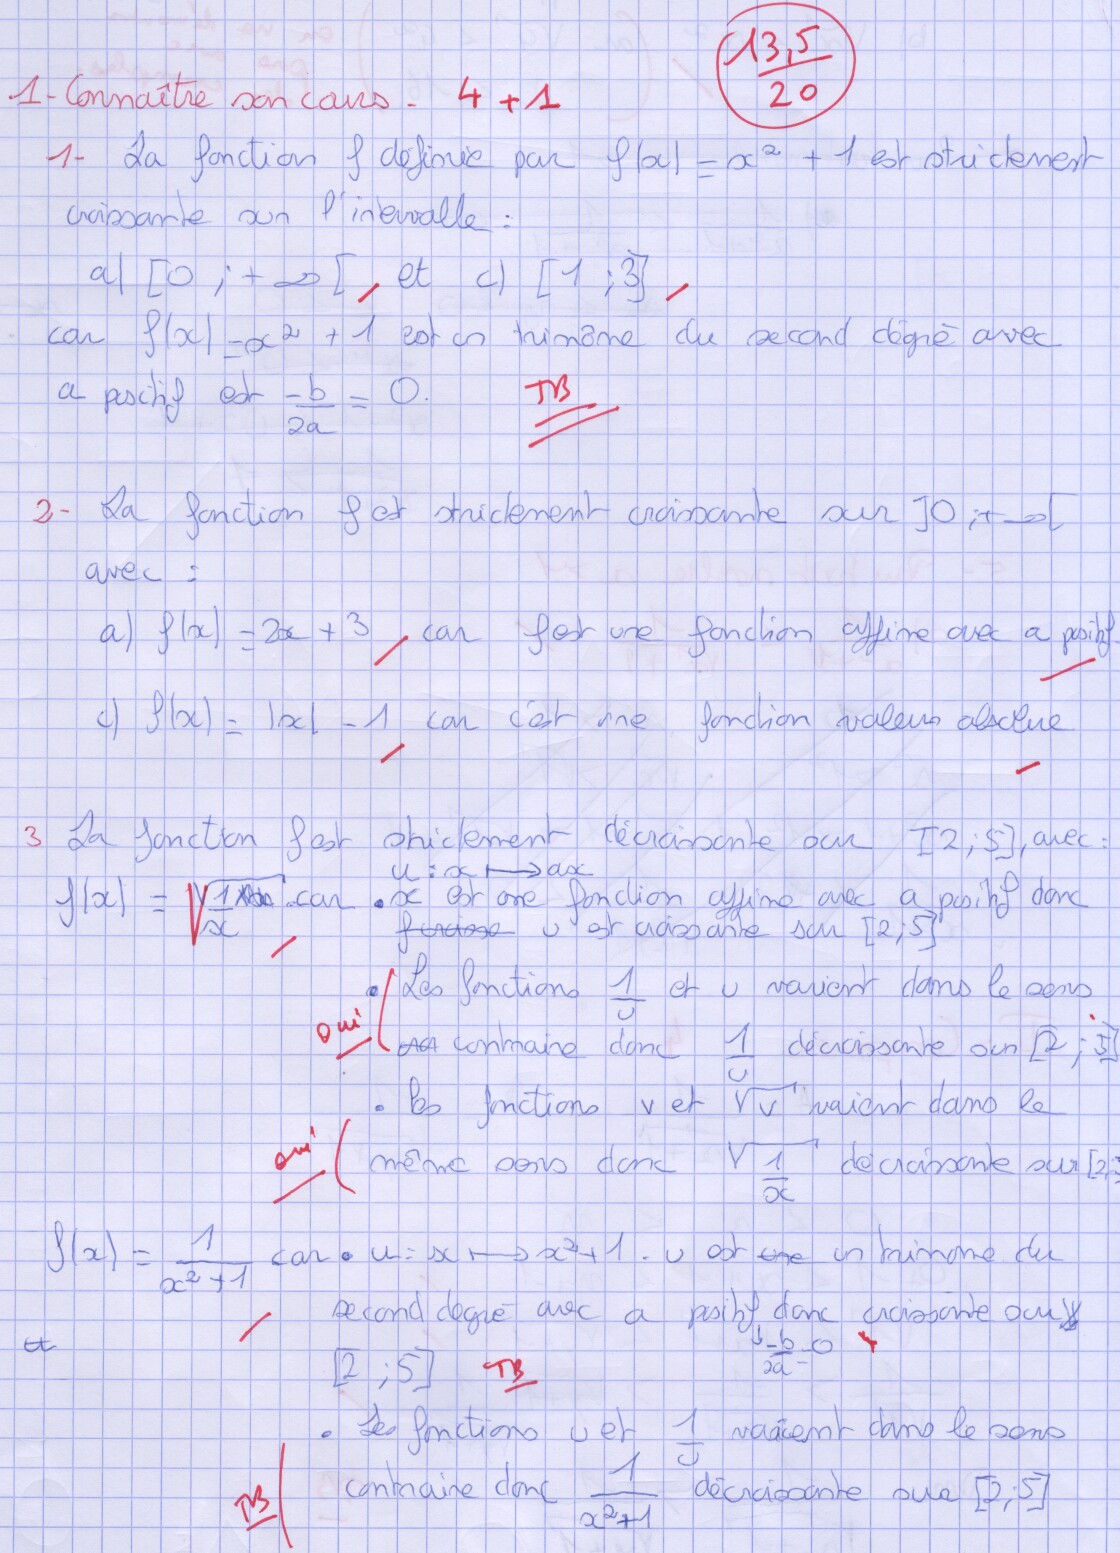 13,5
20
1- Connaître son cours. 4 + 1
1- La fonction f définie par f(x) = x² + 1 est strictement
croissante sur l'intervalle :
a) [0 ; + ∞ [, et c) [1 ; 3]
car f(x) = x² + 1 est un trinôme du second dégré avec
a positif et -b/2a = 0.
TB
2- La fonction f est strictement croissante sur ]0 ; +∞[
avec :
a) f(x) = 2x + 3, car f est une fonction affine avec a positif
c) f(x) = |x| - 1 car c'est une fonction valeur absolue
3 La fonction f est strictement décroissante sur [2 ; 5], avec :
u : x ⟼ ax
f(x) = √(1/x) car • x est une fonction affine avec a positif donc
u est croissante sur [2 ; 5]
• Les fonctions 1/u et u varient dans le sens
oui contraire donc 1/u décroissante sur [2 ; 5]
• les fonctions v et √v varient dans le
oui même sens donc √(1/x) décroissante sur [2;
f(x) = 1/(x²+1) car • u : x ⟼ x²+1. u est un trinôme du
second degré avec a positif donc croissante sur
-b/2a = 0
et
[2 ; 5] TB
• Les fonctions u et 1/u varient dans le sens
TB contraire donc 1/(x²+1) décroissante sur [2 ; 5]